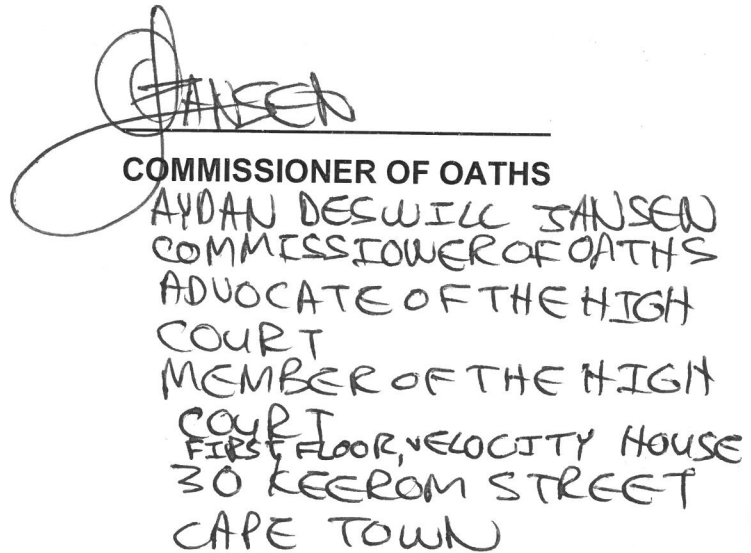 JANSEN
COMMISSIONER OF OATHS
AYDAN DESWILL JANSEN
COMMISSIONER OF OATHS
ADVOCATE OF THE HIGH
COURT
MEMBER OF THE HIGH
COURT
FIRST FLOOR, VELOCITY HOUSE
30 KEEROM STREET
CAPE TOWN